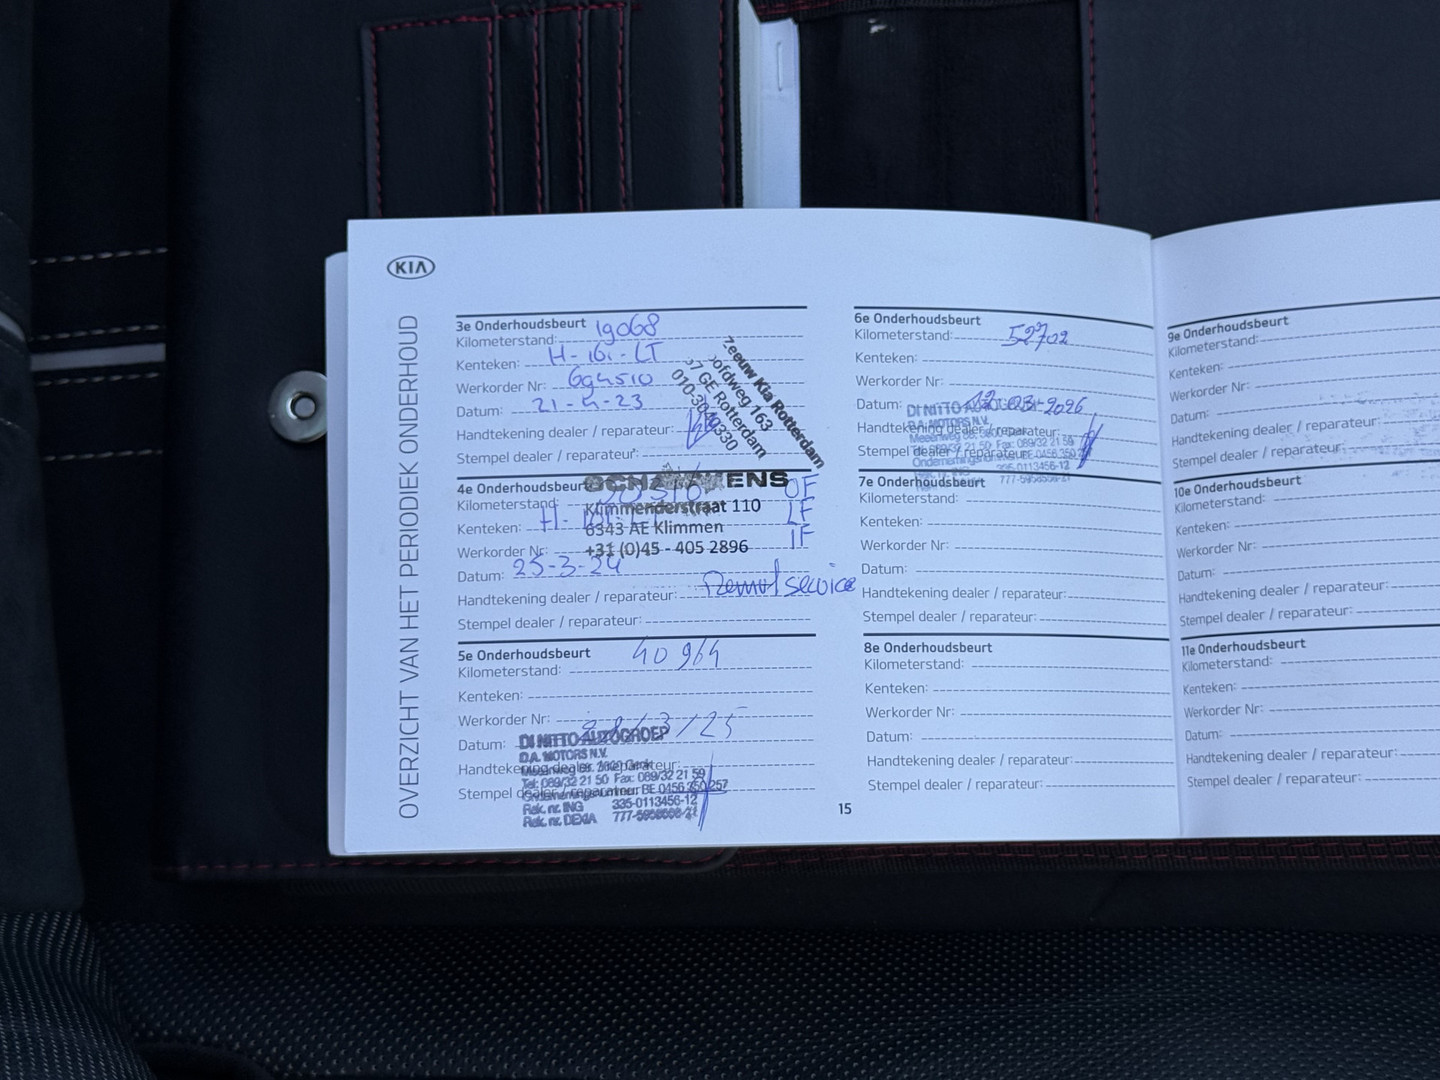 KIA
OVERZICHT VAN HET PERIODIEK ONDERHOUD
3e Onderhoudsbeurt
Kilometerstand: 19068
Kenteken: H-161-LT
Werkorder Nr:
Datum: 21-4-23
Handtekening dealer / reparateur:
Stempel dealer / reparateur:
Zeeuw Kia Rotterdam
oofdweg 163
GE Rotterdam
4e Onderhoudsbeurt
Kilometerstand:
Kenteken: H-
Werkorder Nr:
Datum: 25-3-24
Handtekening dealer / reparateur: service
Stempel dealer / reparateur:
Klimmenderstraat 110
6343 AE Klimmen
+31 (0)45 - 405 2896
OF
LF
IF
5e Onderhoudsbeurt
Kilometerstand: 40964
Kenteken:
Werkorder Nr:
Datum: /3/25
Handtekening dealer / reparateur:
Stempel dealer / reparateur:
DI NITTO AUTOGROEP
D.A. MOTORS N.V.
Tel: 089/32 21 50 Fax: 089/32 21 59
Ondernemingsnummer: BE 0456 350 257
Rek. nr. ING 335-0113456-12
Rek. nr. DEXIA
6e Onderhoudsbeurt
Kilometerstand: 52702
Kenteken:
Werkorder Nr:
Datum:
Handtekening dealer / reparateur:
Stempel dealer / reparateur:
DI NITTO
D.A. MOTORS N.V.
7e Onderhoudsbeurt
Kilometerstand:
Kenteken:
Werkorder Nr:
Datum:
Handtekening dealer / reparateur:
Stempel dealer / reparateur:
8e Onderhoudsbeurt
Kilometerstand:
Kenteken:
Werkorder Nr:
Datum:
Handtekening dealer / reparateur:
Stempel dealer / reparateur:
15
9e Onderhoudsbeurt
Kilometerstand:
Kenteken:
Werkorder Nr:
Datum:
Handtekening dealer / reparateur:
Stempel dealer / reparateur:
10e Onderhoudsbeurt
Kilometerstand:
Kenteken:
Werkorder Nr:
Datum:
Handtekening dealer / reparateur:
Stempel dealer / reparateur:
11e Onderhoudsbeurt
Kilometerstand:
Kenteken:
Werkorder Nr:
Datum:
Handtekening dealer / reparateur:
Stempel dealer / reparateur: